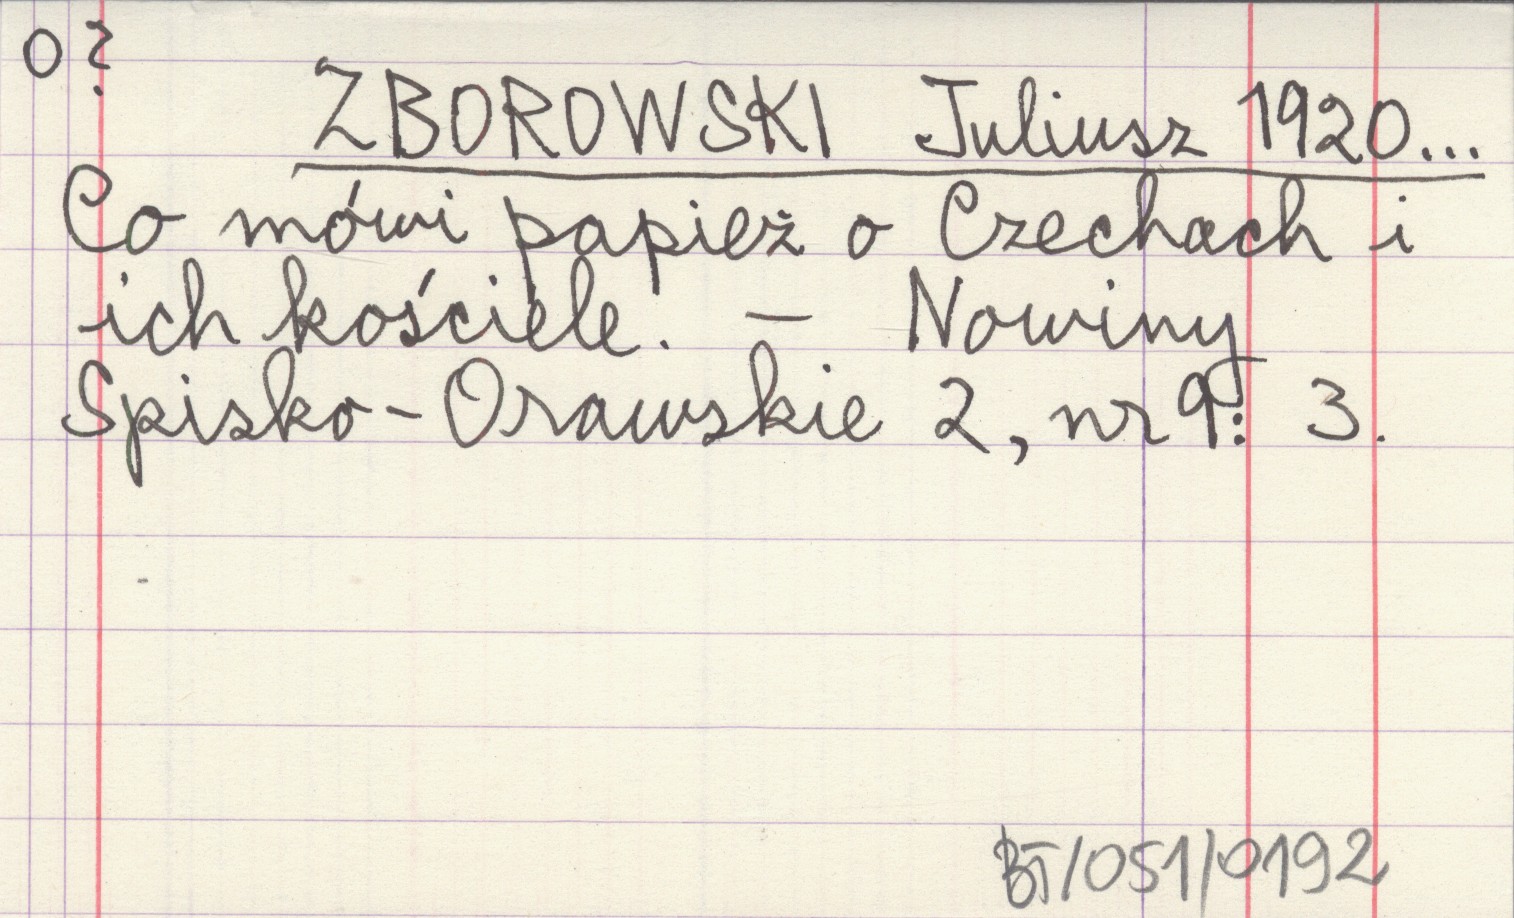 O ?
ZBOROWSKI Juliusz 1920...
Co mówi papież o Czechach i
ich kościele. – Nowiny
Spisko-Orawskie 2, nr 9: 3.
BT/051/0192